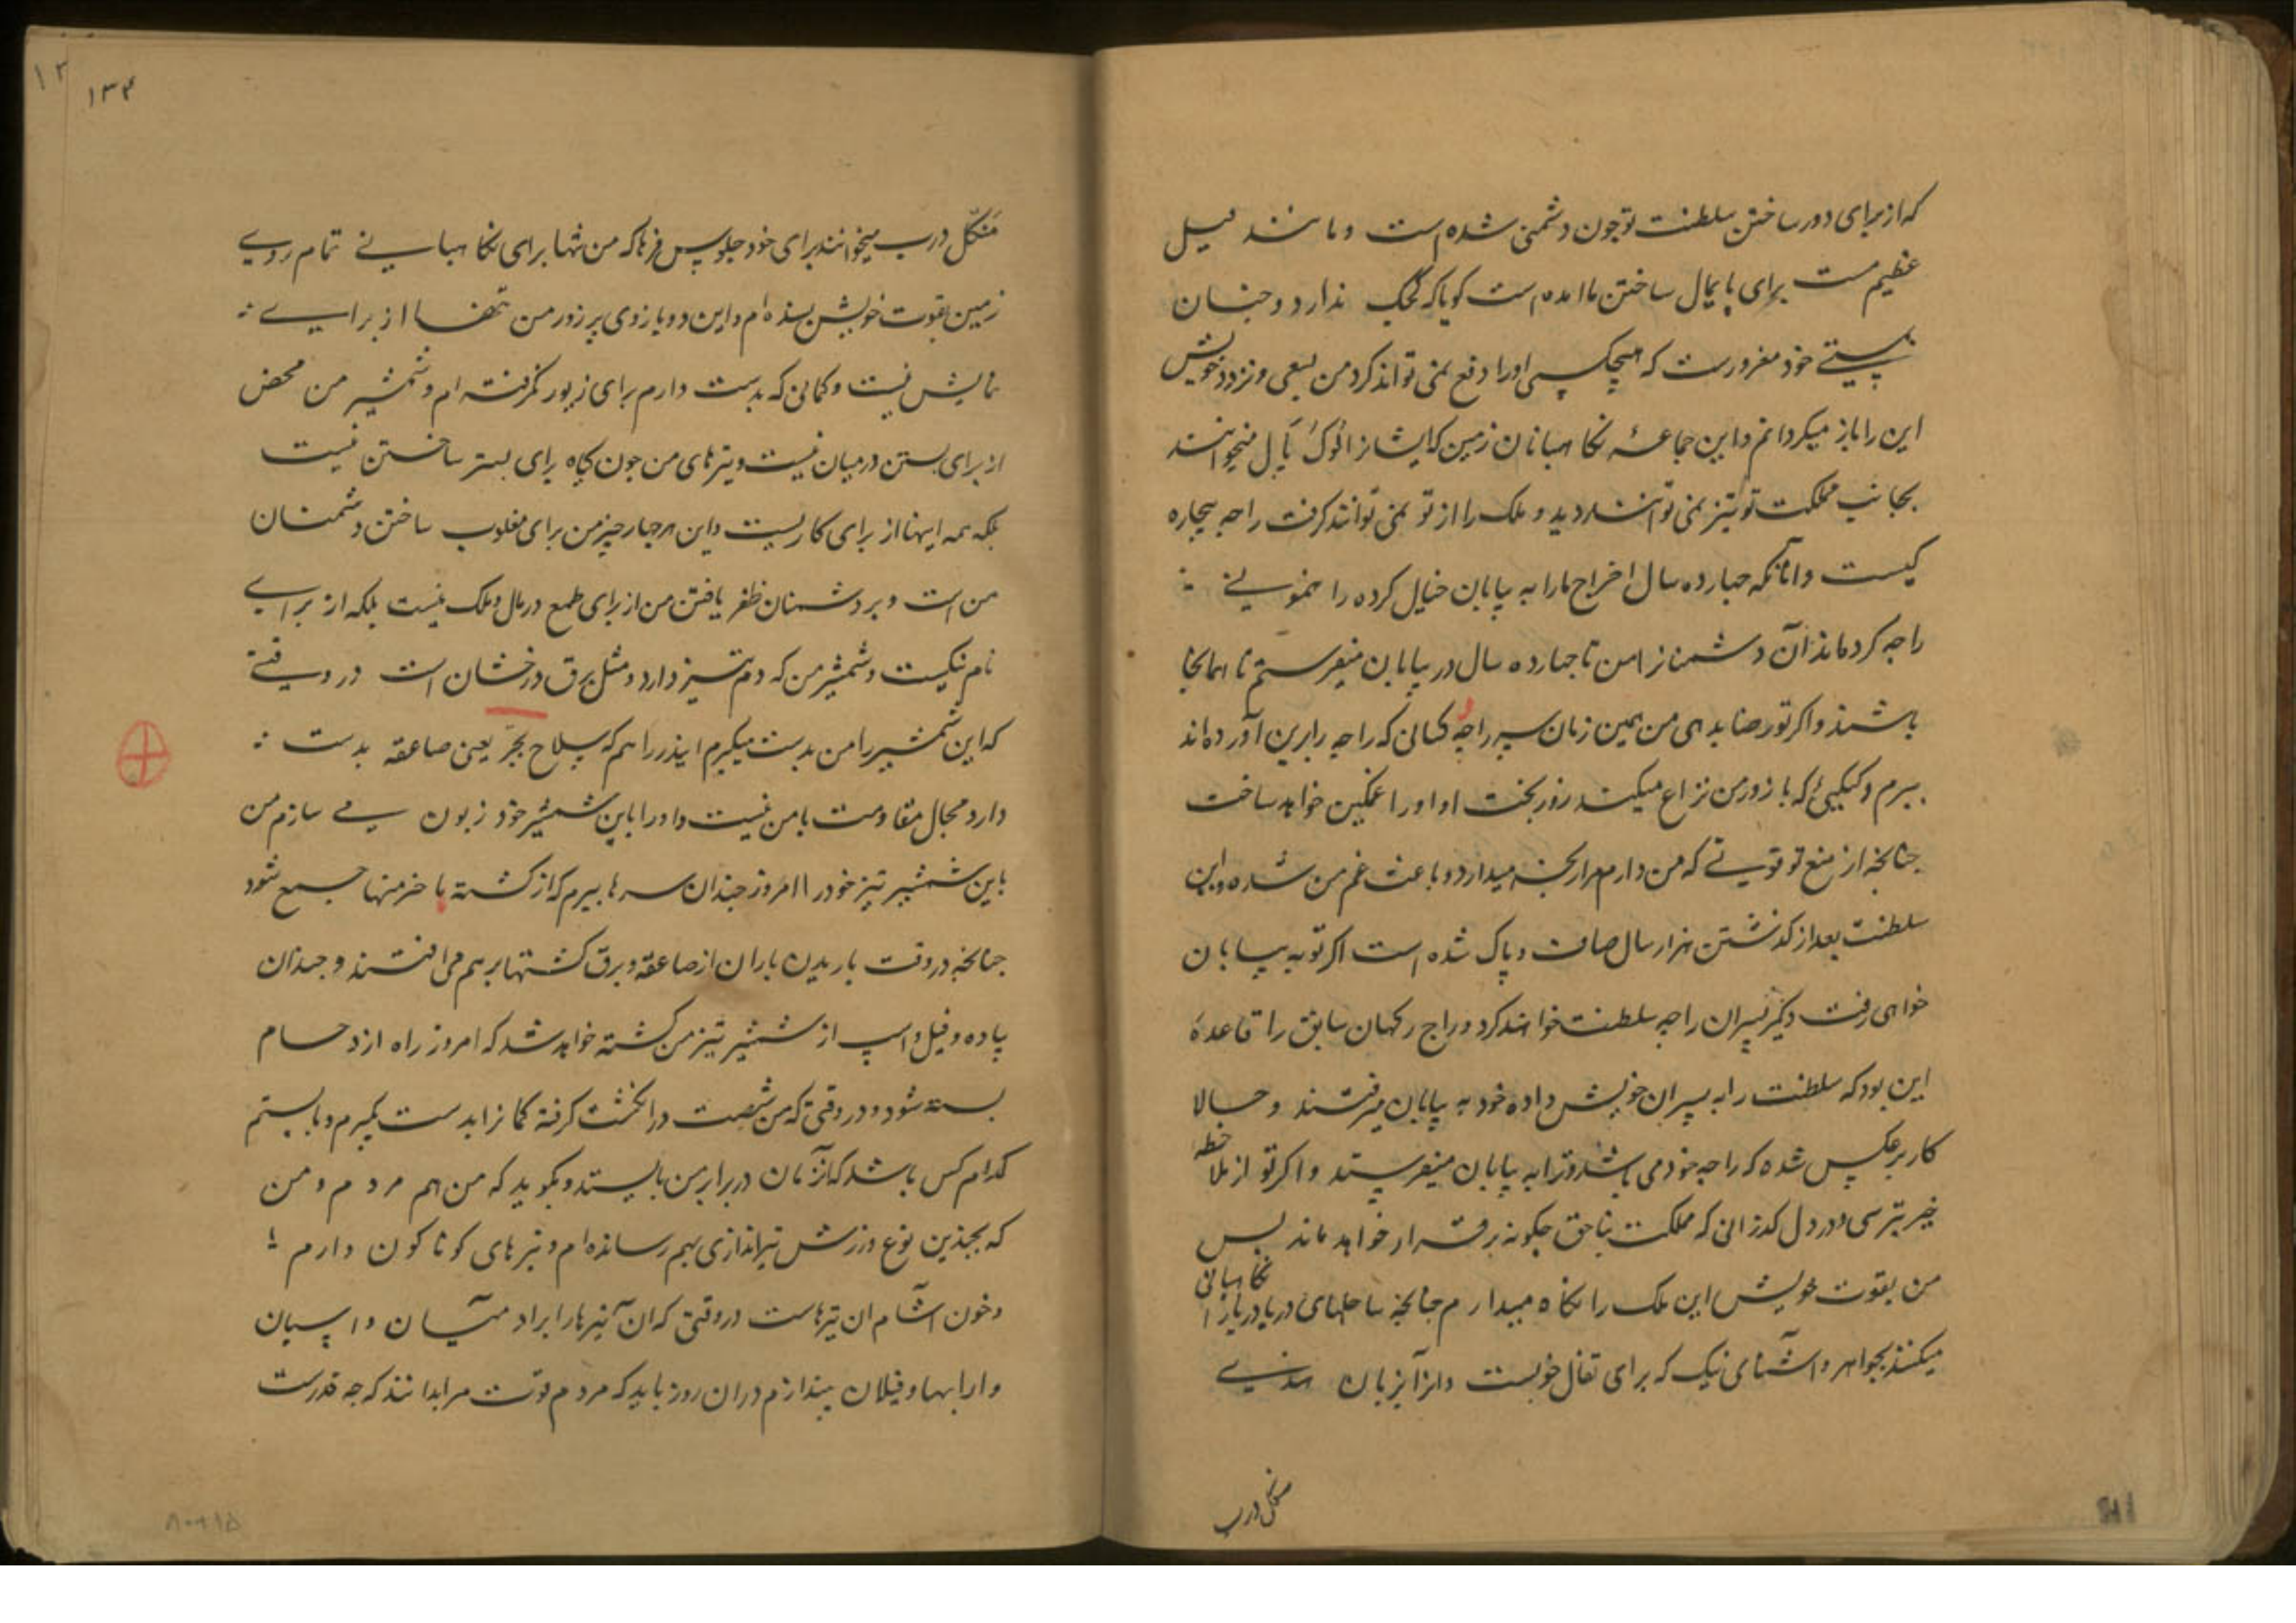 که از برای دور ساختن سلطنت تو چون دشمنی شده است و مانند فیل
عظیم مست برای پایمال ساختن ما امده است کویا که کجک ندارد و چنان
بمستی خود مغرورست که هیچکسی اورا دفع نمی تواند کرد من بسعی و تردد خویش
این را باز میکردانم و این جماعهٔ نکاهبانان زمین که ایشانرا لوک پال میخوانند
بجانب مملکت تو تیز نمی توانند دید و ملک را از تو نمی توانند کرفت راجه بیچاره
کیست و انانکه چهارده سال اخراج ما را به بیابان خیال کرده
راجه کرده اند آن دشمنانرا من تا چهارده سال در بیابان میفرستم تا همانجا
باشند و اکر تو رضا بدهی من همین زمان سر راجه کسانی که راجه را برین آورده اند
ببرم و کیکیئی که با زور من نزاع میکند زور بخت او اورا غمکین خواهد ساخت
چنانچه از منع تو قوتی که من دارم مرا رنجه میدارد و باعث غم من شده و این
سلطنت بعد از کذشتن هزار سال صاف و پاک شده است اکر تو به بیابان
خواهی رفت دیکر پسران راجه سلطنت خواهند کرد و راج رکهان سابق را قاعدهٔ
این بود که سلطنت را به پسران خویش داده خود به بیابان میرفتند و حالا
کار برعکس شده که راجه خود می باشد و ترا به بیابان میفرستد و اکر تو از ملاحظه
خیر بترسی و در دل کذرانی که مملکت بناحق چکونه برقرار خواهد ماند پس
من بقوت خویش این ملک را نکاه میدارم چنانچه ساحلهای دریا دریا را نکاهبانی
میکنند بجواهر و اشیای نیک که برای تفال خوبست و انرا بزبان هندی
منکل درب
۱۳۴
منکل درب میخوانند برای خود جلوس فرما که من تنها برای نکاهبانی تمام روی
زمین بقوت خویش بسنده ام و این دو بازوی پر زور من تنها از برای
نمایش نیست و کمانی که بدست دارم برای زیور نکرفته ام و شمشیر من محض
از برای بستن درمیان نیست و تیرهای من چون کیاه برای بستر ساختن نیست
بلکه همه اینها از برای کاریست و این هر چهار چیز من برای مغلوب ساختن دشمنان
من است و بر دشمنان ظفر یافتن من از برای طمع در مال و ملک نیست بلکه از برای
نام نیکیست و شمشیر من که دم تیز دارد و مثل برق درخشان است در وقتی
که این شمشیر را من بدست میکیرم ایندر را هم که سلاح بجر یعنی صاعقه بدست
دارد مجال مقاومت با من نیست و اورا باین شمشیر خود زبون می سازم من
باین شمشیر تیز خود را امروز چندان سرها ببرم که از کشته ها خرمنها جمع شود
چنانچه در وقت باریدن باران از صاعقه و برق کشتها بر هم می افتند و چندان
پیاده و فیل و اسپ از شمشیر تیز من کشته خواهد شد که امروز راه ازدحام
بسته شود و در وقتی که من شصت در انکشت کرفته کمانرا بدست بکیرم و بایستم
کدام کس باشد که آنزمان در برابر من بایستد و بکوید که من هم مردم و من
که بچندین نوع ورزش تیراندازی بهم رسانده ام و تیرهای کوناکون دارم
و خون آشام ان تیرهاست در وقتی که ان تیرها را بر ادمیان و اسپان
و ارابها و فیلان بیندازم در ان روز باید که مردم قوت مرا بدانند که چه قدرست